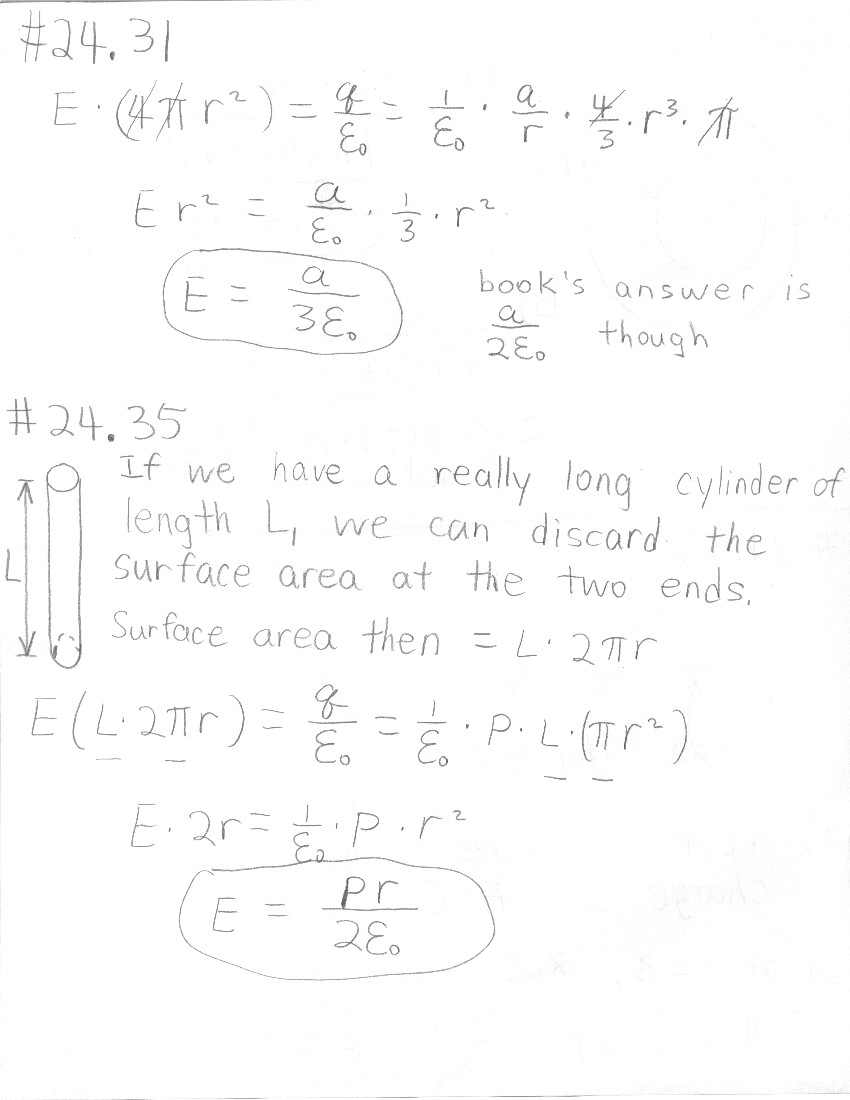 #24.31
E · (4π r²) = q/ε₀ = 1/ε₀ · a/r · 4/3 · r³ · π
E r² = a/ε₀ · 1/3 · r²
E = a/3ε₀
book's answer is
a/2ε₀ though
#24.35
If we have a really long cylinder of
length L, we can discard the
surface area at the two ends.
Surface area then = L · 2πr
L
E(L·2πr) = q/ε₀ = 1/ε₀ · P · L · (πr²)
E · 2r = 1/ε₀ · P · r²
E = Pr/2ε₀